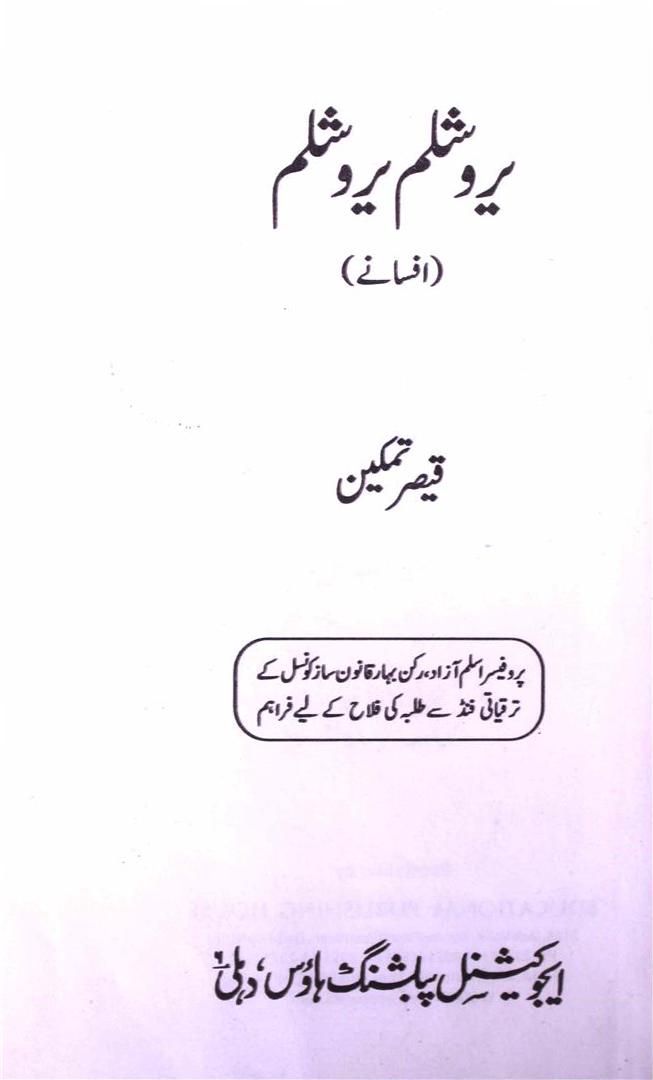 یروشلم یروشلم
(افسانے)
قیصر تمکین
پروفیسر اسلم آزاد، رکن بہار قانون ساز کونسل کے
ترقیاتی فنڈ سے طلبہ کی فلاح کے لیے فراہم
ایجوکیشنل پبلشنگ ہاؤس، دہلی ۶
EDUCATIONAL PUBLISHING HOUSE